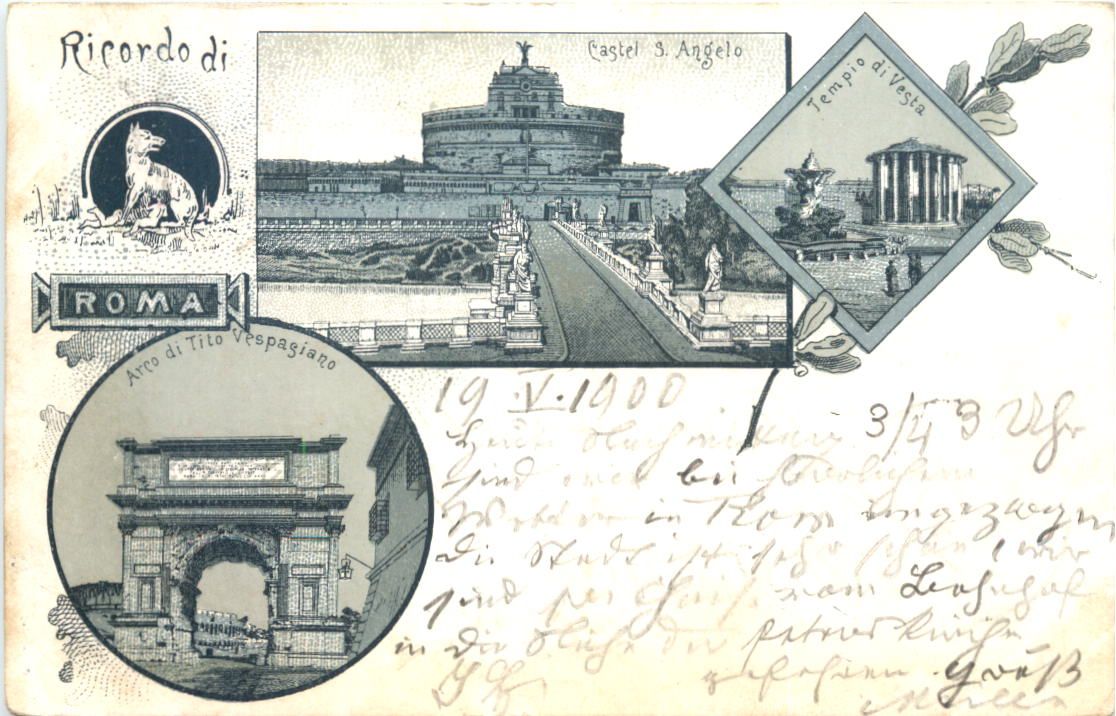 Ricordo di
Castel S. Angelo
Tempio di Vesta
ROMA
Arco di Tito Vespasiano
19.V.1900
Heute Nachmittag 3/4 3 Uhr
sind wir bei herrlichem
Wetter in Rom eingezogen
die Stadt ist sehr schön, wir
sind per vom Bahnhof
in die Nähe der Peterskirche
gefahren. Gruß